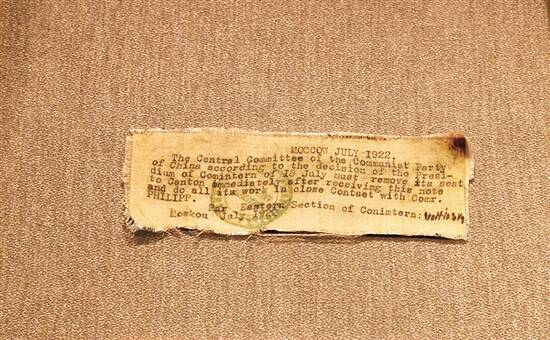 MOSCOW JULY 1922.
The Central Committee of the Communist Party
of China according to the decision of the Presi-
dium of Comintern of 18 July must remove its seat
to Canton immediately after receiving this note
and do all its work in close Contact with Comr.
PHILIPP.
Far Eastern Section of Conimtern:
Moskou July